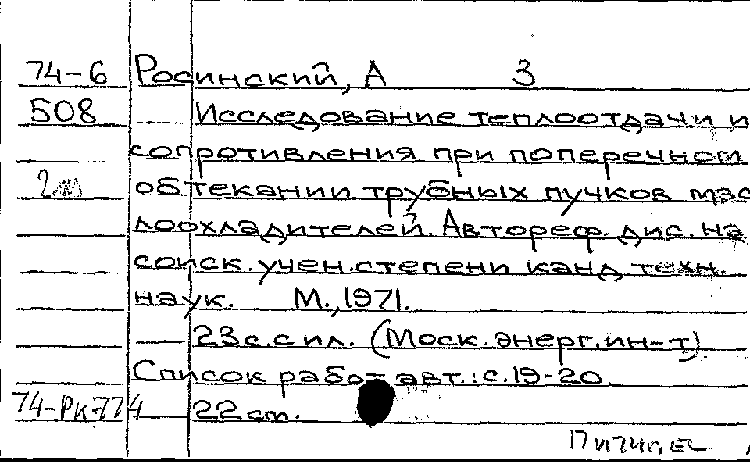 74-6 Росинский, А З
508 Исследование теплоотдачи и
сопротивления при поперечном
2 обтекании трубных пучков мас
лоохладителей. Автореф. дис. на
соиск. учен. степени канд. техн.
наук. М., 1971.
23с. с ил. (Моск. энерг. ин-т)
Список работ авт.: с. 19-20
74-РК-774 22 ст.